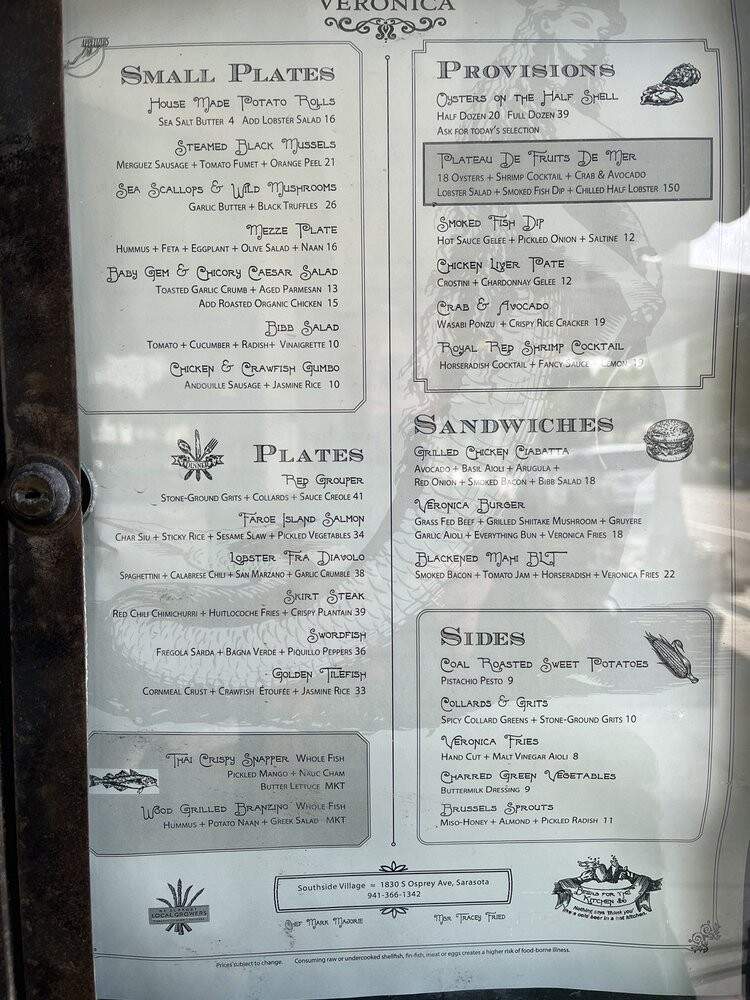 VERONICA
APPETITES
SMALL PLATES
HOUSE MADE POTATO ROLLS
SEA SALT BUTTER 4 ADD LOBSTER SALAD 16
STEAMED BLACK MUSSELS
MERGUEZ SAUSAGE + TOMATO FUMET + ORANGE PEEL 21
SEA SCALLOPS & WILD MUSHROOMS
GARLIC BUTTER + BLACK TRUFFLES 26
MEZZE PLATE
HUMMUS + FETA + EGGPLANT + OLIVE SALAD + NAAN 16
BABY GEM & CHICORY CAESAR SALAD
TOASTED GARLIC CRUMB + AGED PARMESAN 13
ADD ROASTED ORGANIC CHICKEN 15
BIBB SALAD
TOMATO + CUCUMBER + RADISH+ VINAIGRETTE 10
CHICKEN & CRAWFISH GUMBO
ANDOUILLE SAUSAGE + JASMINE RICE 10
DINNER
PLATES
RED GROUPER
STONE-GROUND GRITS + COLLARDS + SAUCE CREOLE 41
FAROE ISLAND SALMON
CHAR SIU + STICKY RICE + SESAME SLAW + PICKLED VEGETABLES 34
LOBSTER FRA DIAVOLO
SPAGHETTINI + CALABRESE CHILI + SAN MARZANO + GARLIC CRUMBLE 38
SKIRT STEAK
RED CHILI CHIMICHURRI + HUITLOCOCHE FRIES + CRISPY PLANTAIN 39
SWORDFISH
FREGOLA SARDA + BAGNA VERDE + PIQUILLO PEPPERS 36
GOLDEN TILEFISH
CORNMEAL CRUST + CRAWFISH ÉTOUFÉE + JASMINE RICE 33
THAI CRISPY SNAPPER WHOLE FISH
PICKLED MANGO + NAUC CHAM
BUTTER LETTUCE MKT
WOOD GRILLED BRANZINO WHOLE FISH
HUMMUS + POTATO NAAN + GREEK SALAD MKT
PROVISIONS
OYSTERS ON THE HALF SHELL
HALF DOZEN 20 FULL DOZEN 39
ASK FOR TODAY'S SELECTION
PLATEAU DE FRUITS DE MER
18 OYSTERS + SHRIMP COCKTAIL + CRAB & AVOCADO
LOBSTER SALAD + SMOKED FISH DIP + CHILLED HALF LOBSTER 150
SMOKED FISH DIP
HOT SAUCE GELEE + PICKLED ONION + SALTINE 12
CHICKEN LIVER PATE
CROSTINI + CHARDONNAY GELEE 12
CRAB & AVOCADO
WASABI PONZU + CRISPY RICE CRACKER 19
ROYAL RED SHRIMP COCKTAIL
HORSERADISH COCKTAIL + FANCY SAUCE LEMON
SANDWICHES
GRILLED CHICKEN CIABATTA
AVOCADO + BASIL AIOLI + ARUGULA +
RED ONION + SMOKED BACON + BIBB SALAD 18
VERONICA BURGER
GRASS FED BEEF + GRILLED SHIITAKE MUSHROOM + GRUYERE
GARLIC AIOLI + EVERYTHING BUN + VERONICA FRIES 18
BLACKENED MAHI BLT
SMOKED BACON + TOMATO JAM + HORSERADISH + VERONICA FRIES 22
SIDES
COAL ROASTED SWEET POTATOES
PISTACHIO PESTO 9
COLLARDS & GRITS
SPICY COLLARD GREENS + STONE-GROUND GRITS 10
VERONICA FRIES
HAND CUT + MALT VINEGAR AIOLI 8
CHARRED GREEN VEGETABLES
BUTTERMILK DRESSING 9
BRUSSELS SPROUTS
MISO-HONEY + ALMOND + PICKLED RADISH 11
WE SUPPORT
LOCAL GROWERS
Southside Village ≈ 1830 S Osprey Ave, Sarasota
941-366-1342
CHEF MARK MAJORIE
MGR TRACEY FRIED
BEERS FOR THE
KITCHEN $6
Nothing says 'thank you'
like a cold beer in a hot kitchen!
Prices subject to change. Consuming raw or undercooked shellfish, fin-fish, meat or eggs creates a higher risk of food-borne illness.